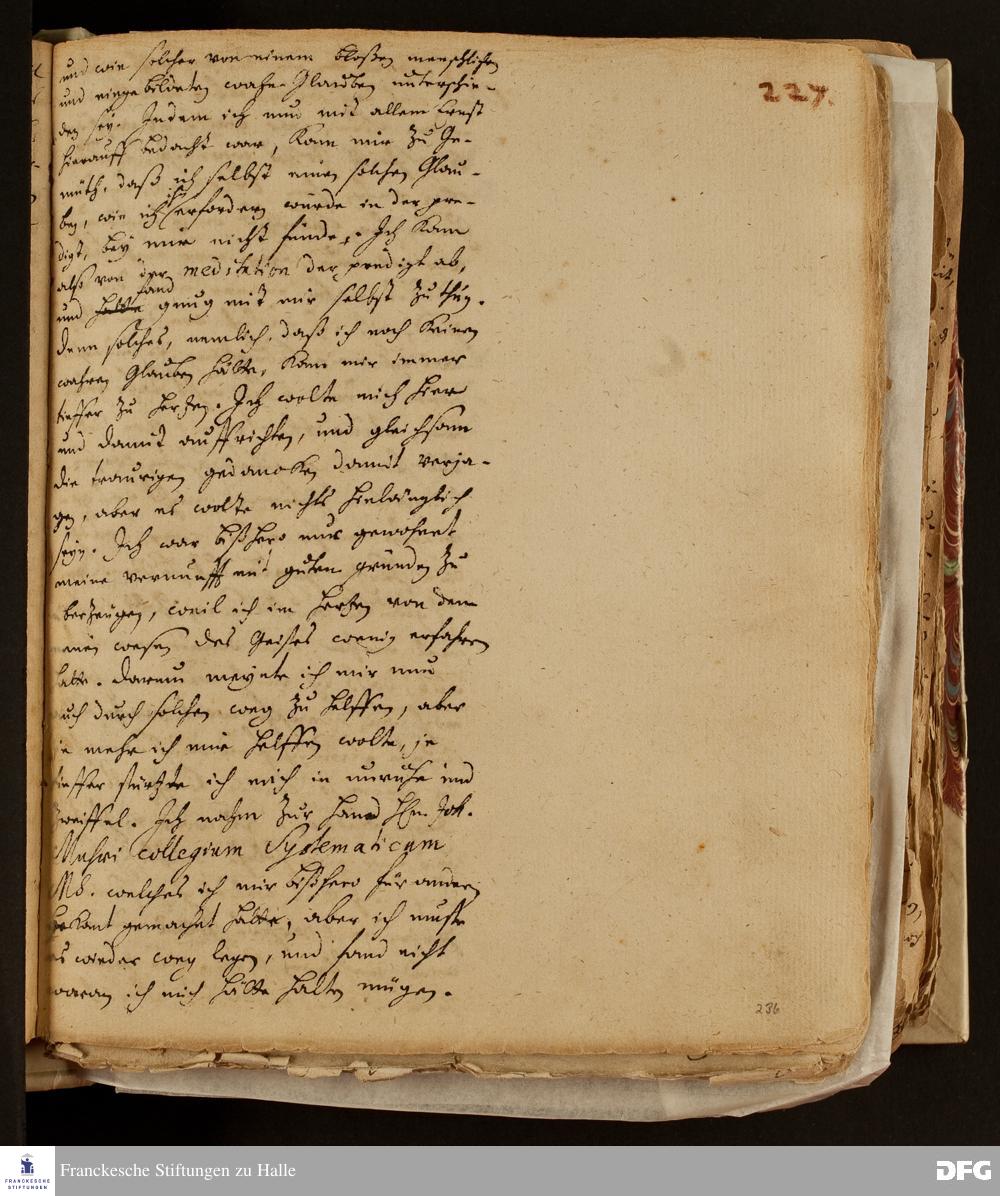 und wie solcher von einem bloßen menschlichen
und eingebildeten wahn-Glauben unterschie-
den sey. Indem ich nun mit allem Ernst
hierauff bedacht war, kam mir zu Ge-
müth, daß ich selbst einen solchen Glau-
ben, wie ich ihn erfordern würde in der pre-
digt, bey mir nicht fünde. Ich kam
also von der meditation der predigt ab,
und fand gnug mit mir selbst zu thun.
denn solches, nemlich, daß ich noch keinen
wahren Glauben hätte, kam mir immer
tieffer zu hertzen. Ich wolte mich hier
und damit auffrichten, und gleichsam
die traurigen gedancken damit verja-
gen, aber es wolte nichts hinlänglich
seyn. Ich war bißhero nur gewohnet
meine vernunfft mit guten gründen zu
berzeugen, weil ich im hertzen von dem
neuen wesen des Geistes wenig erfahren
hatte. Darum meynte ich mir nun
auch durch solchen weg zu helffen, aber
je mehr ich mir helffen wolte, je
tieffer stürtzte ich mich in unruhe und
zweiffel. Ich nahm zur hand Hn. Joh.
Musaei collegium Systematicum
Ms. welches ich mir bißhero für andern
bekant gemachet hatte, aber ich muste
es wieder weg legen, und fand nicht
woran ich mich hätte halten mügen.
227.
236
Franckesche Stiftungen zu Halle
FRANCKESCHE
STIFTUNGEN
DFG